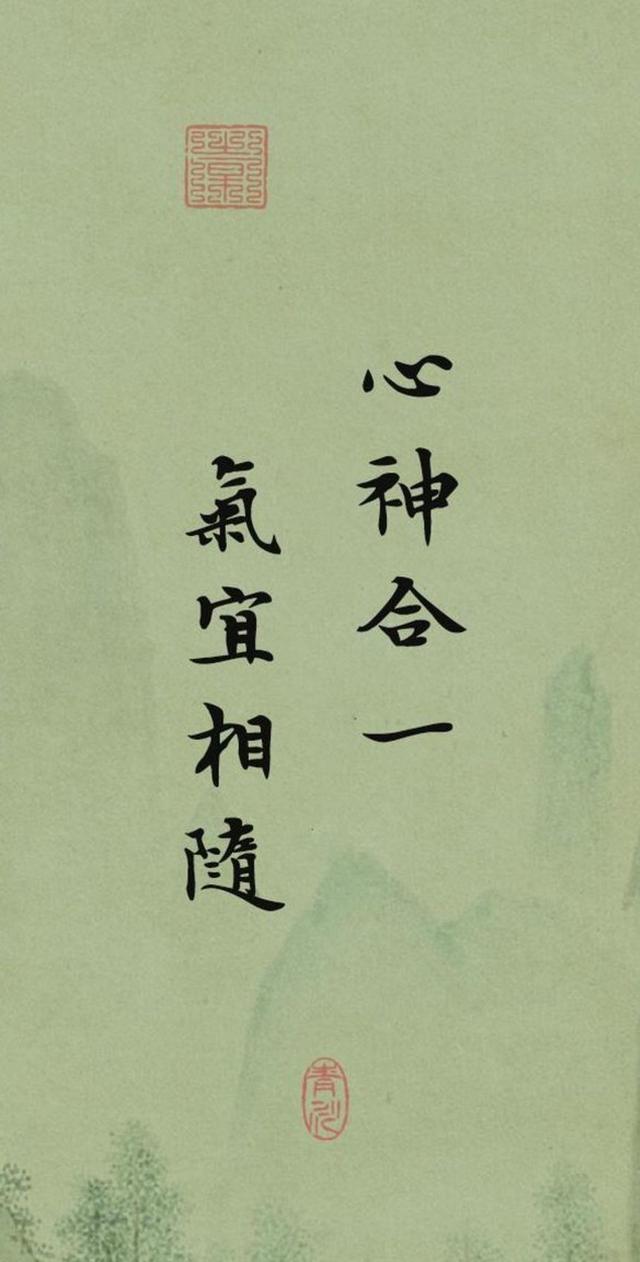 心神合一
氣宜相隨